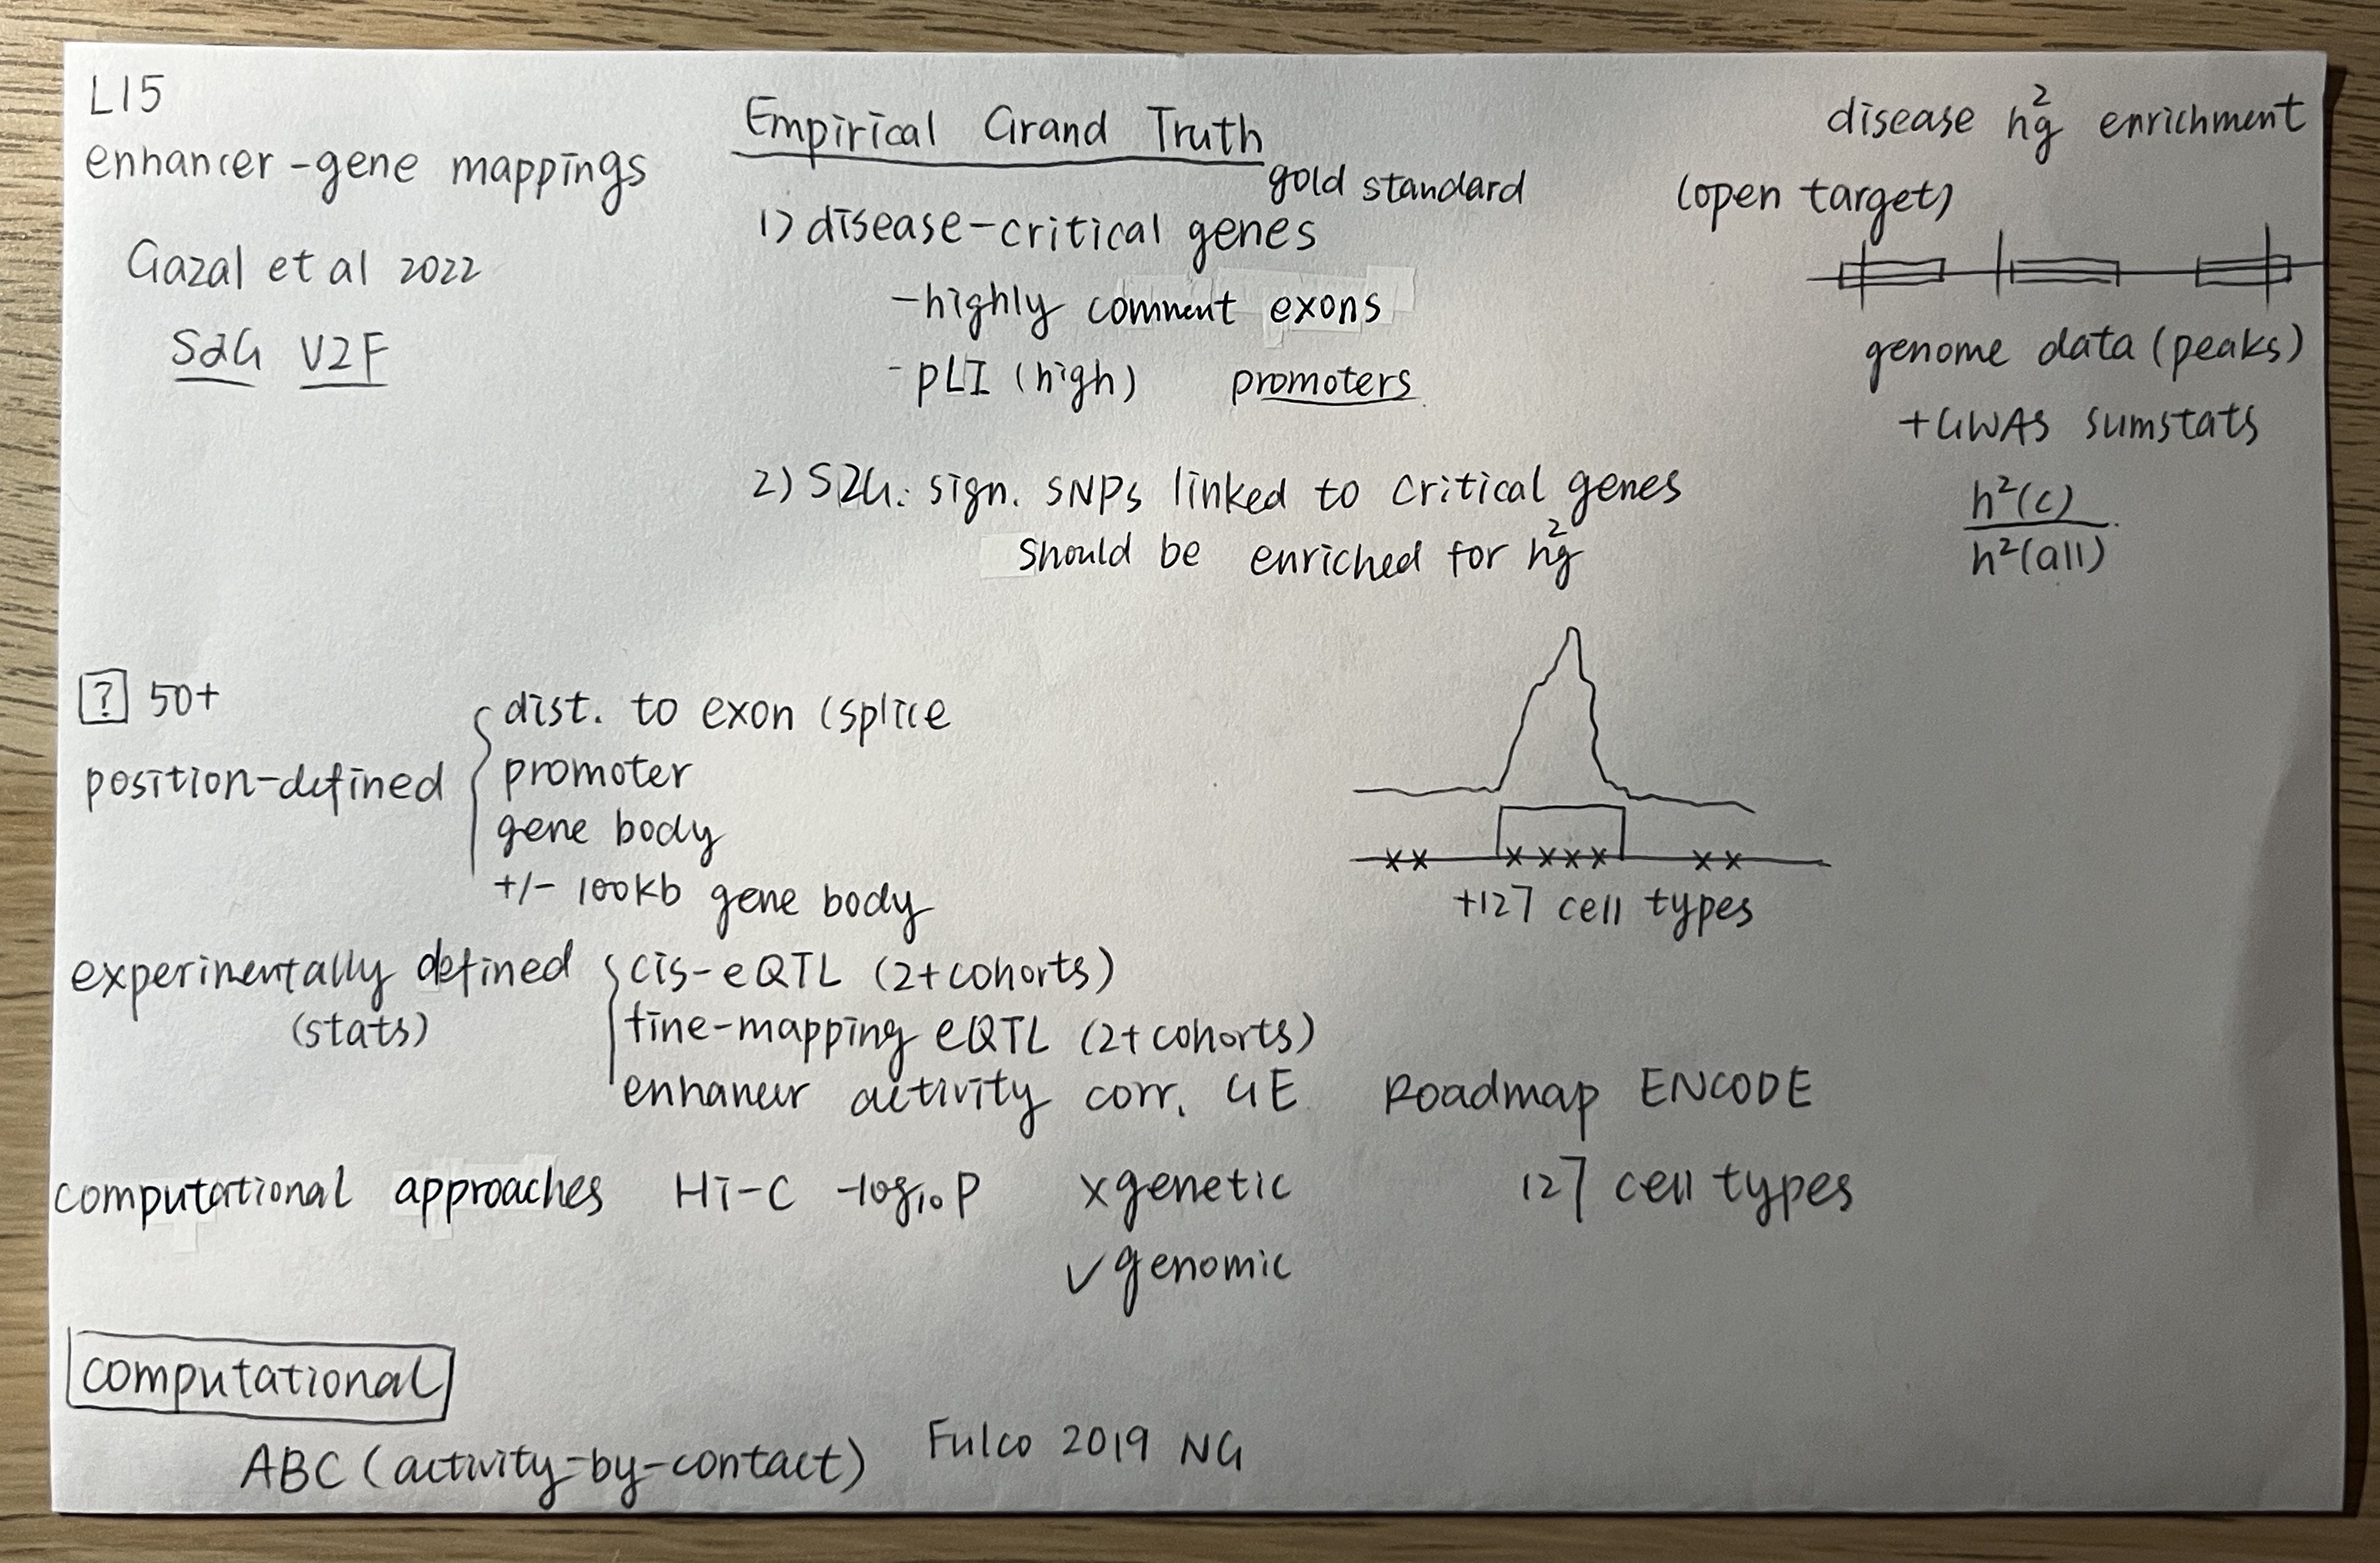 L15
enhancer-gene mappings
Gazal et al 2022
S2G V2F
Empirical Grand Truth
gold standard
1) disease-critical genes
-highly comment exons
- pLI (high) promoters
2) S2G: sign. SNPs linked to critical genes
should be enriched for hg²
disease hg² enrichment
(open target)
genome data (peaks)
+GWAS sumstats
h²(c)
h²(all)
? 50+
position-defined
dist. to exon (splice
promoter
gene body
+/- 100kb gene body
+127 cell types
experimentally defined
(stats)
cis-eQTL (2+cohorts)
fine-mapping eQTL (2+cohorts)
enhancer activity corr. GE
Roadmap ENCODE
127 cell types
computational approaches Hi-C -log₁₀P
x genetic
✓ genomic
computational
ABC (activity-by-contact) Fulco 2019 NG